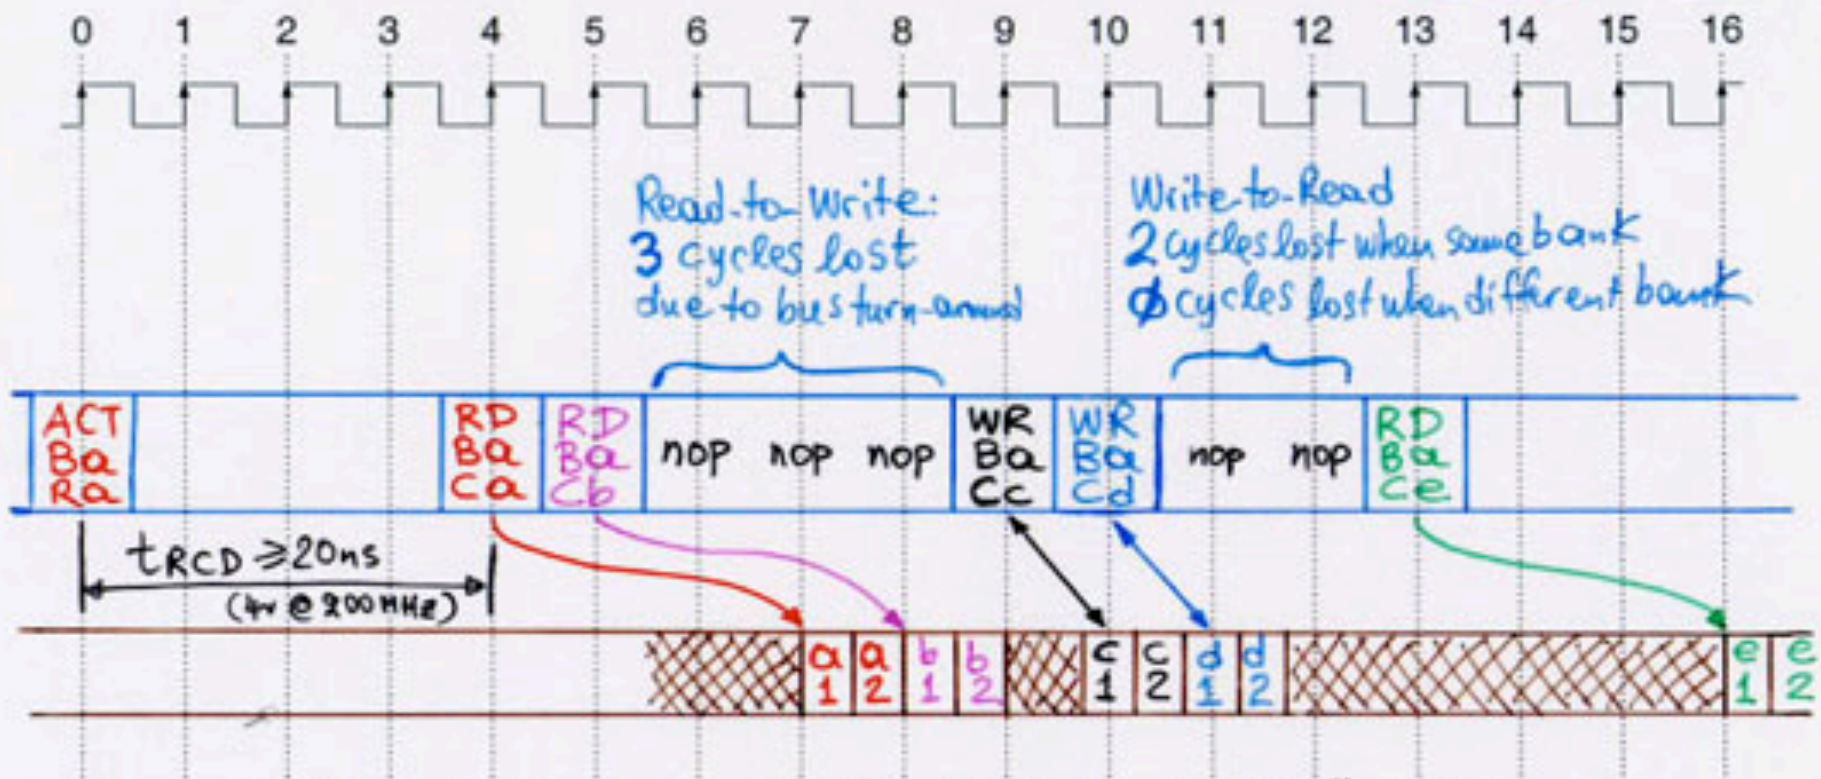 0 1 2 3 4 5 6 7 8 9 10 11 12 13 14 15 16
Read-to-Write:
3 cycles lost
due to bus turn-around
Write-to-Read
2 cycles lost when same bank
0 cycles lost when different bank
ACT
Ba
Ra
RD
Ba
Ca
RD
Ba
Cb
nop nop nop
WR
Ba
Cc
WR
Ba
Cd
nop nop
RD
Ba
Ce
tRCD ≥20ns
(4~ @ 200MHz)
a a b b c c d d e e
1 2 1 2 1 2 1 2 1 2